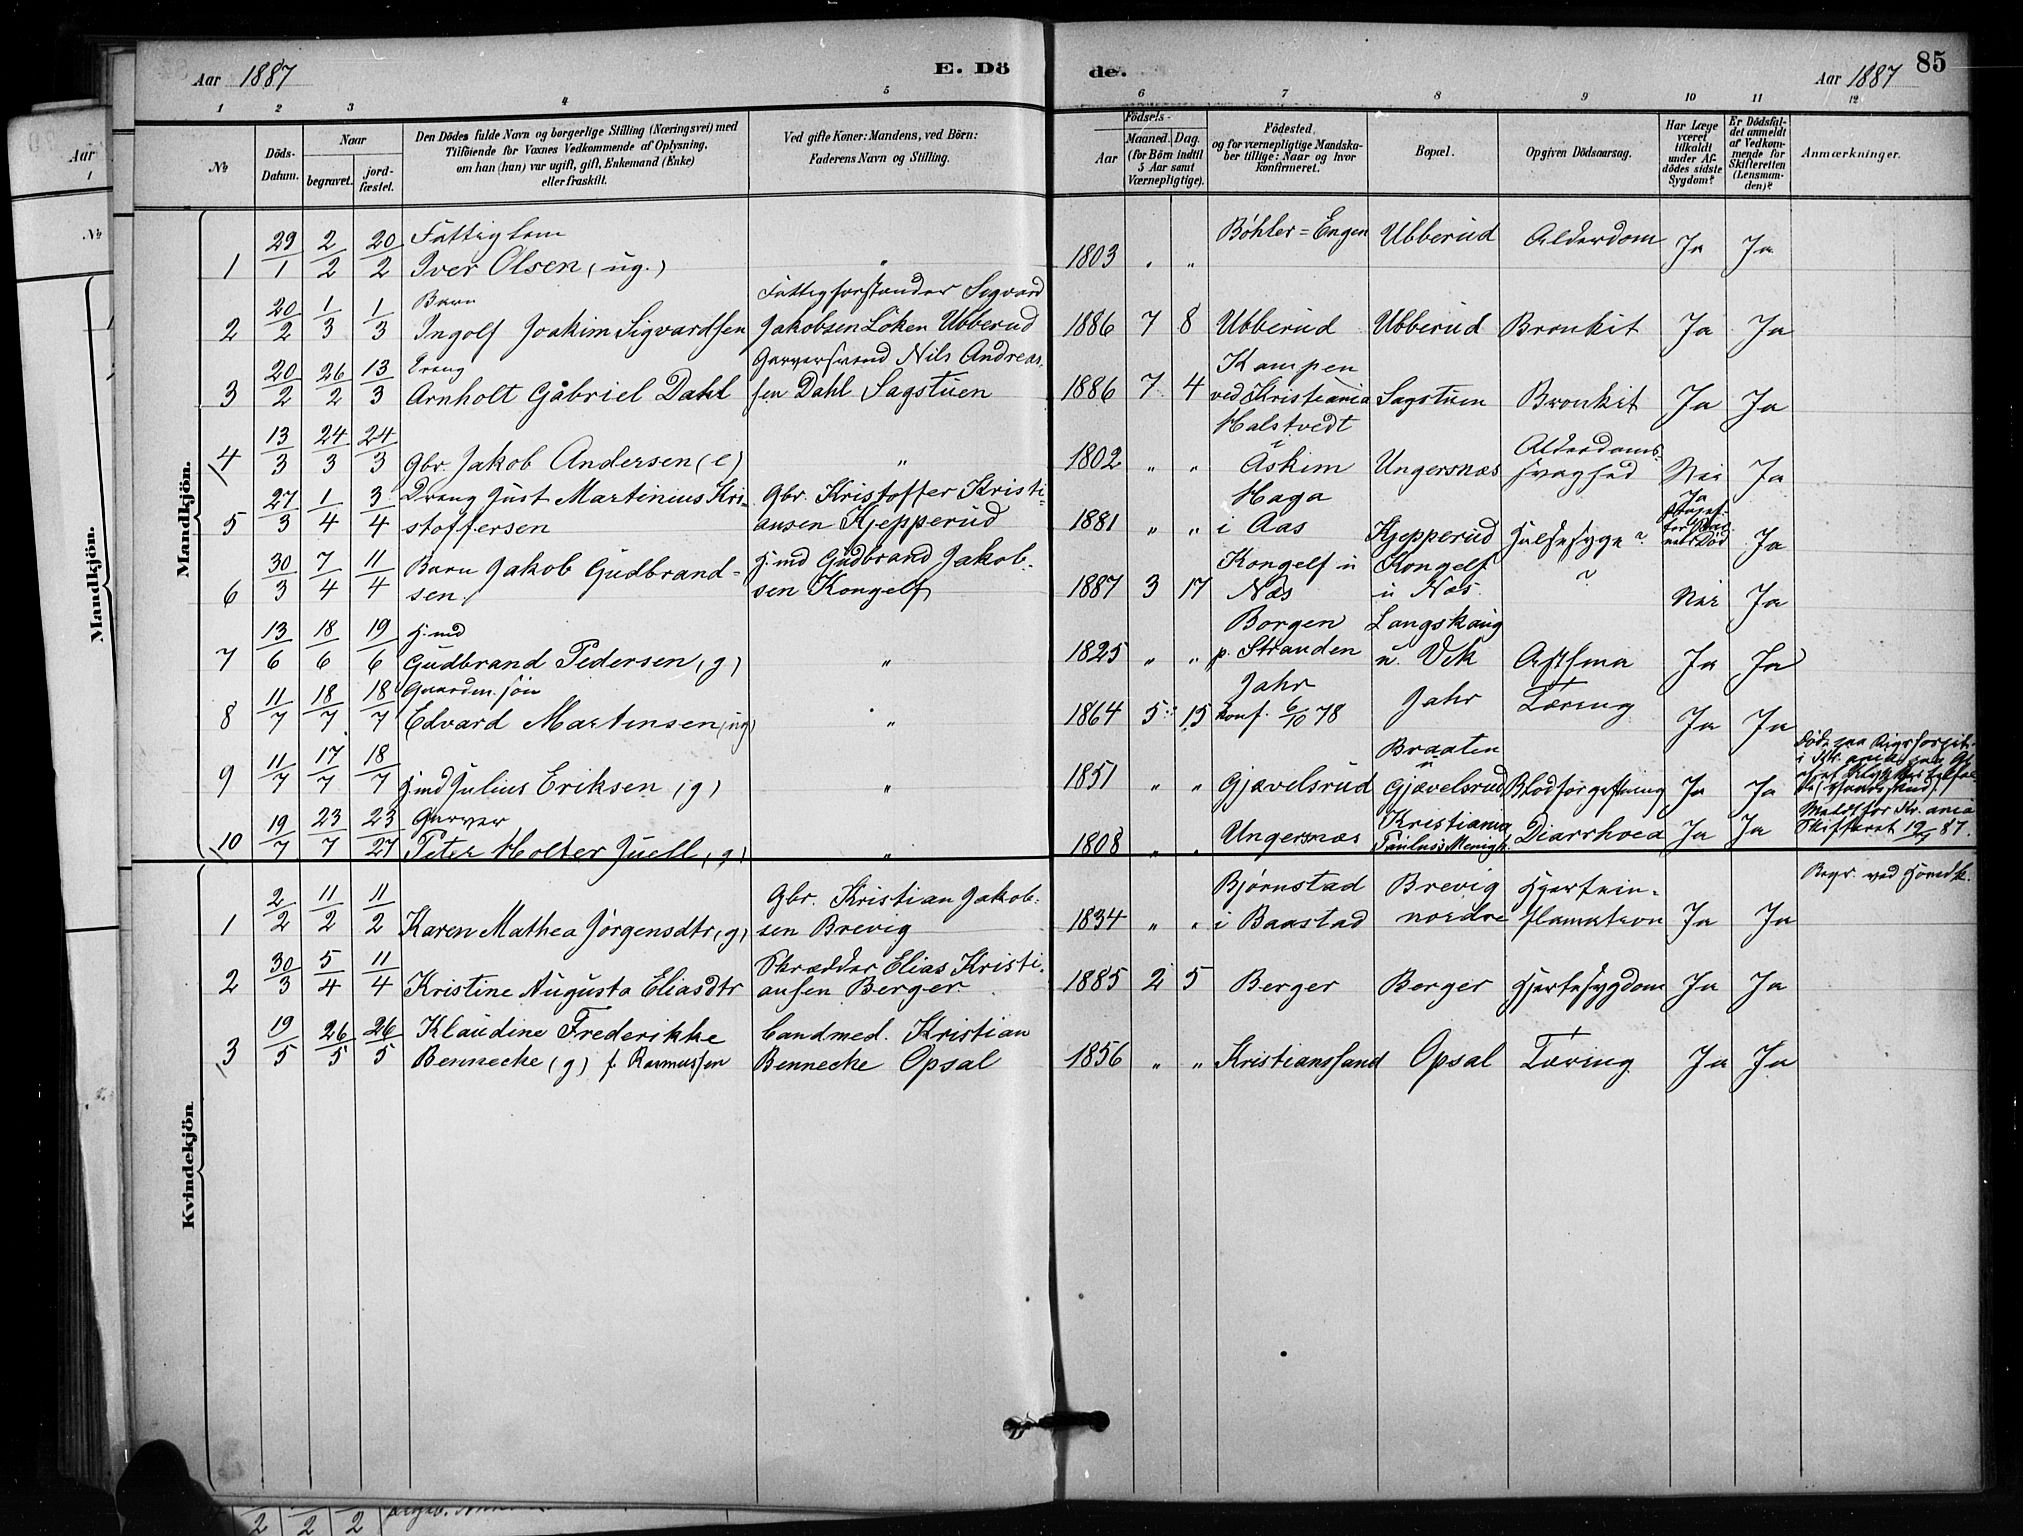 Aar 1887
E. Dö
de.
Aar 1887
85
1 2 3 4 5 6 7 8 9 10 11 12
No
Döds-
Datum.
Naar
begravet.
jord-
fæstet.
Den Dödes fulde Navn og borgerlige Stilling (Næringsvei) med
Tilföiende for Voxnes Vedkommende af Oplysning,
om han (hun) var ugift, gift, Enkemand (Enke)
eller fraskilt.
Ved gifte Koner: Mandens, ved Börn:
Faderens Navn og Stilling.
Födsels-
Aar
Maaned. Dag.
(for Börn indtil
5 Aar samt
Værnepligtige).
Födested,
og for værnepligtige Mandska-
ber tillige: Naar og hvor
konfirmeret.
Bopæl.
Opgiven Dödsaarsag.
Har Læge
været
tilkaldt
under Af-
dödes sidste
Sygdom?
Er Dödsfal-
det anmeldt
af Vedkom-
mende for
Skifteretten
(Lensman-
den)?
Anmærkninger.
Mandkjön.
1 29/1 2/2 20/2 Fattiglem
Iver Olsen (ug.) " 1803 " " Böhler=Engen Ubberud Alderdom Ja Ja
2 20/2 1/3 1/3 Barn
Ingolf Joakim Sigvardsen Fattigforstander Sigvard
Jakobsen Löken Ubberud 1886 7 8 Ubberud Ubberud Bronkit Ja Ja
3 20/2 26/2 13/3 Dreng
Arnholt Gabriel Dahl Garversvend Nils Andreas
sen Dahl Sagstuen 1886 7 4 Kampen
ved Kristiania Sagstuen Bronkit Ja Ja
4 13/3 24/3 24/3 Gbr. Jakob Andersen (e) " 1802 " " Halstvedt
i
Askim Ungersnæs Alderdoms-
svaghed Nei Ja
5 27/3 1/4 3/4 Dreng Just Martinius Kri-
stoffersen Gbr. Kristoffer Kristi-
ansen Kjepperud 1881 " " Haga
i Aas Kjepperud Halsesyge? Ja
Ja
6 30/3 7/4 11/4 Barn Jakob Gudbrand-
sen Hmd Gudbrand Jakob-
sen Kongelf 1887 3 17 Kongelf u
Næs Kongelf
u Næs ? Nei Ja
7 13/6 18/6 19/6 Hmd
Gudbrand Pedersen (g) " 1825 " " Borgen
p. Stranden Langskaug
u. Vik Asthma Ja Ja
8 11/7 18/7 18/7 Gaardm. sön
Edvard Martinsen (ug) " 1864 5 15 Jahr
konf. 6/10 78 Jahr Tæring Ja Ja
9 11/7 17/7 18/7 Hmd Julius Eriksen (g) " 1851 " " Gjævelsrud Braaten
u
Gjævelsrud Blodforgiftning Ja Ja Döde paa Rigshospit.
10 19/7 23/7 23/27 Garver
Peter Holter Juell (g) " 1808 " " Ungersnæs Kristiania
Paulus's Menigh. Diarrhoea Ja Ja Meldt for Kr.ania
Skifteret 19/7 87.
Kvindekjön
1 2/2 11/2 11/2 Karen Mathea Jörgensdtr (g) Gbr. Kristian Jakob-
sen Brevig 1834 " " Björnstad
i Baastad Brevig
nordre Hjertein-
flamation Ja Ja
2 30/3 5/4 11/4 Kristine Augusta Eliasdtr Skrædder Elias Kristi-
ansen Berger 1885 2 5 Berger Berger Hjertesygdom Ja Ja
3 19/5 26/5 26/5 Klaudine Frederikke
Bennecke (g) f. Rasmussen Candmed. Kristian
Bennecke Opsal 1856 " " Kristianssand Opsal Tæring Ja Ja
Aar
1
No
Mandkjön.